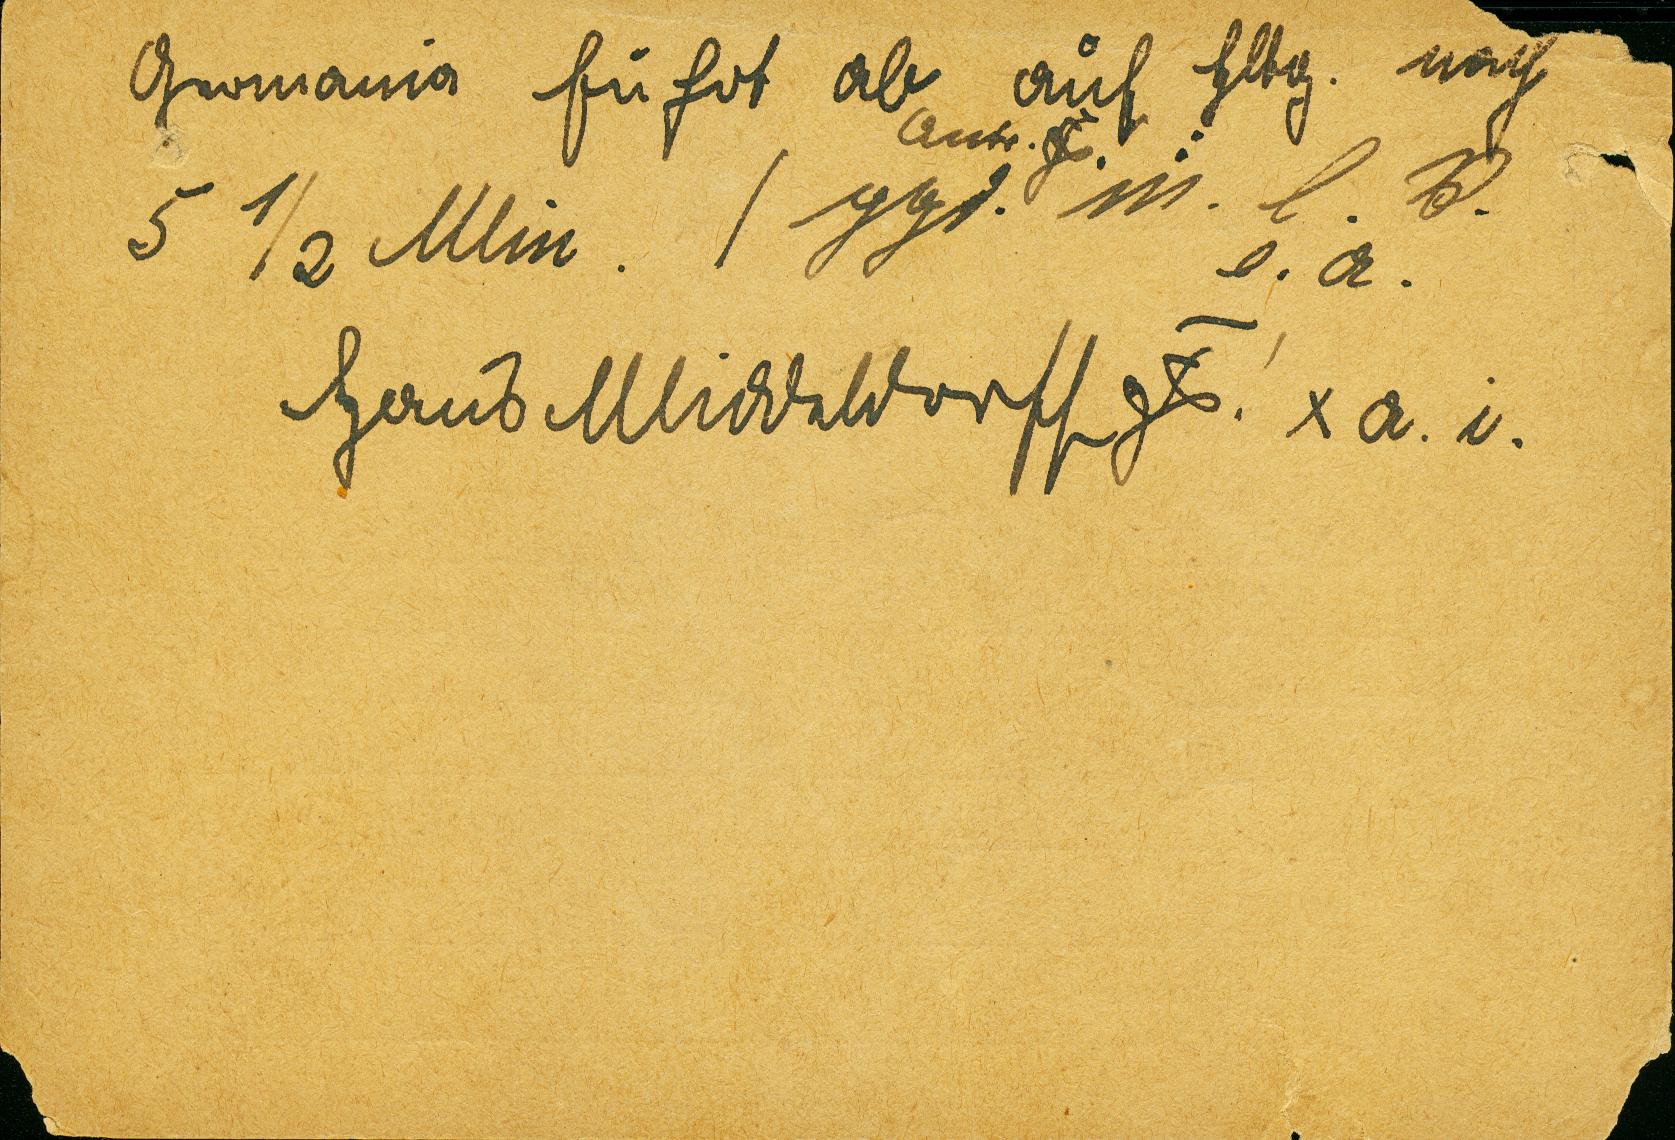 Germania führt ab auf Hltg. nach
Antr.
5 1/2 Min. / ggs. m. l. B.
e. a.
Hans Middeldorff x a. i.